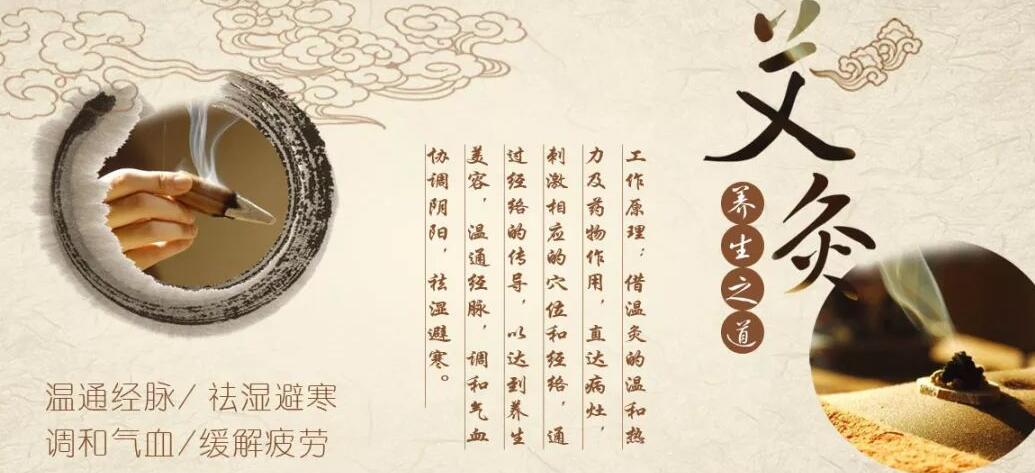 艾灸
养生之道
工作原理：借温灸的温和热
力及药物作用，直达病灶，
刺激相应的穴位和经络，通
过经络的传导，以达到养生
美容，温通经脉，调和气血
协调阴阳，祛湿避寒。
温通经脉/ 祛湿避寒
调和气血/缓解疲劳